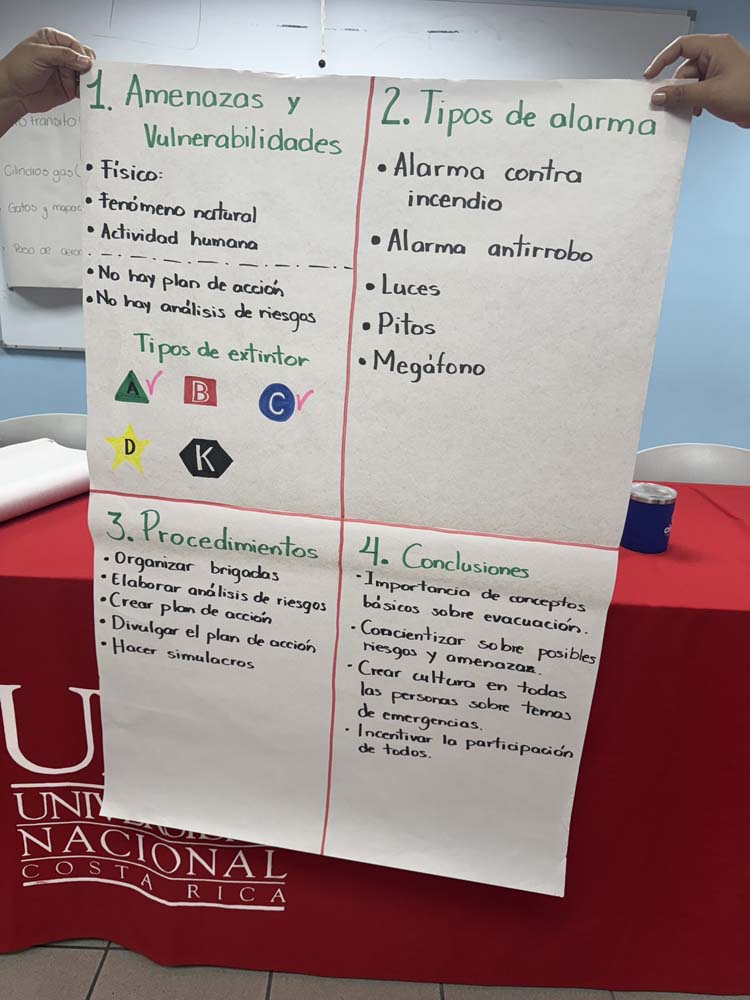 1. Amenazas y
Vulnerabilidades
• Físico:
• Fenómeno natural
• Actividad humana
• No hay plan de acción
• No hay análisis de riesgos
Tipos de extintor
A B C
D K
2. Tipos de alarma
• Alarma contra
incendio
• Alarma antirrobo
• Luces
• Pitos
• Megáfono
3. Procedimientos
• Organizar brigadas
• Elaborar análisis de riesgos
• Crear plan de acción
• Divulgar el plan de acción
• Hacer simulacros
4. Conclusiones
• Importancia de conceptos
básicos sobre evacuación.
• Concientizar sobre posibles
riesgos y amenazas.
• Crear cultura en todas
las personas sobre temas
de emergencias.
• Incentivar la participación
de todos.
tránsito
Cilindros gas
Gatos y mapac
U
UNIV
NACIONAL
COSTA RICA